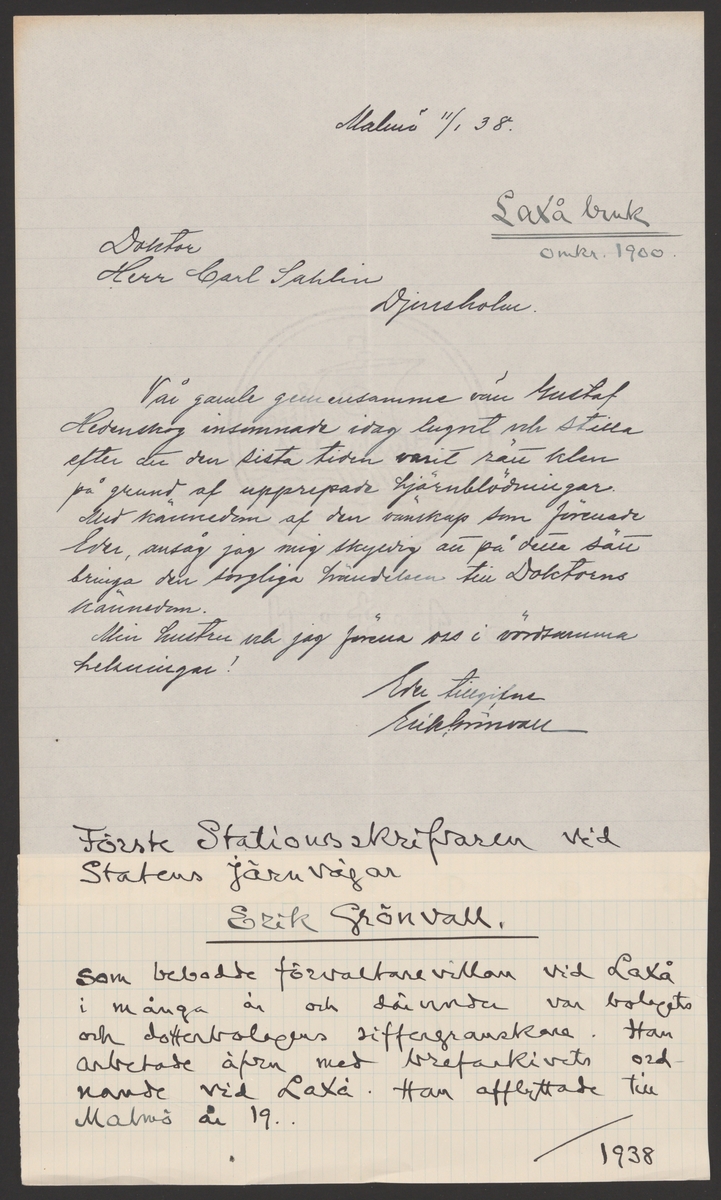 Malmö 11/1 38.
Laxå bruk
omkr. 1900.
Doktor
Herr Carl Sahlin
Djursholm.
Vår gamle gemensamme vän Gustaf
Hedenskog insomnade idag lugnt och stilla
efter att den sista tiden varit rätt klen
på grund af upprepade hjärnblödningar.
Med kännedom af den vänskap som förenade
Eder, ansåg jag mig skyldig att på detta sätt
bringa den sorgliga händelsen till Doktorns
kännedom.
Min hustru och jag förena oss i vördsamma
helsningar!
Eder tillgifne
Erik Grönvall
Förste Stationsskrifvaren vid
Statens Järnvägar
Erik Grönvall.
som bebodde förvaltarevillan vid Laxå
i många år och därunder var bolagets
och dotterbolagens siffergranskare. Han
arbetade äfven med brefarkivets ord-
nande vid Laxå. Han afflyttade till
Malmö år 19..
1938